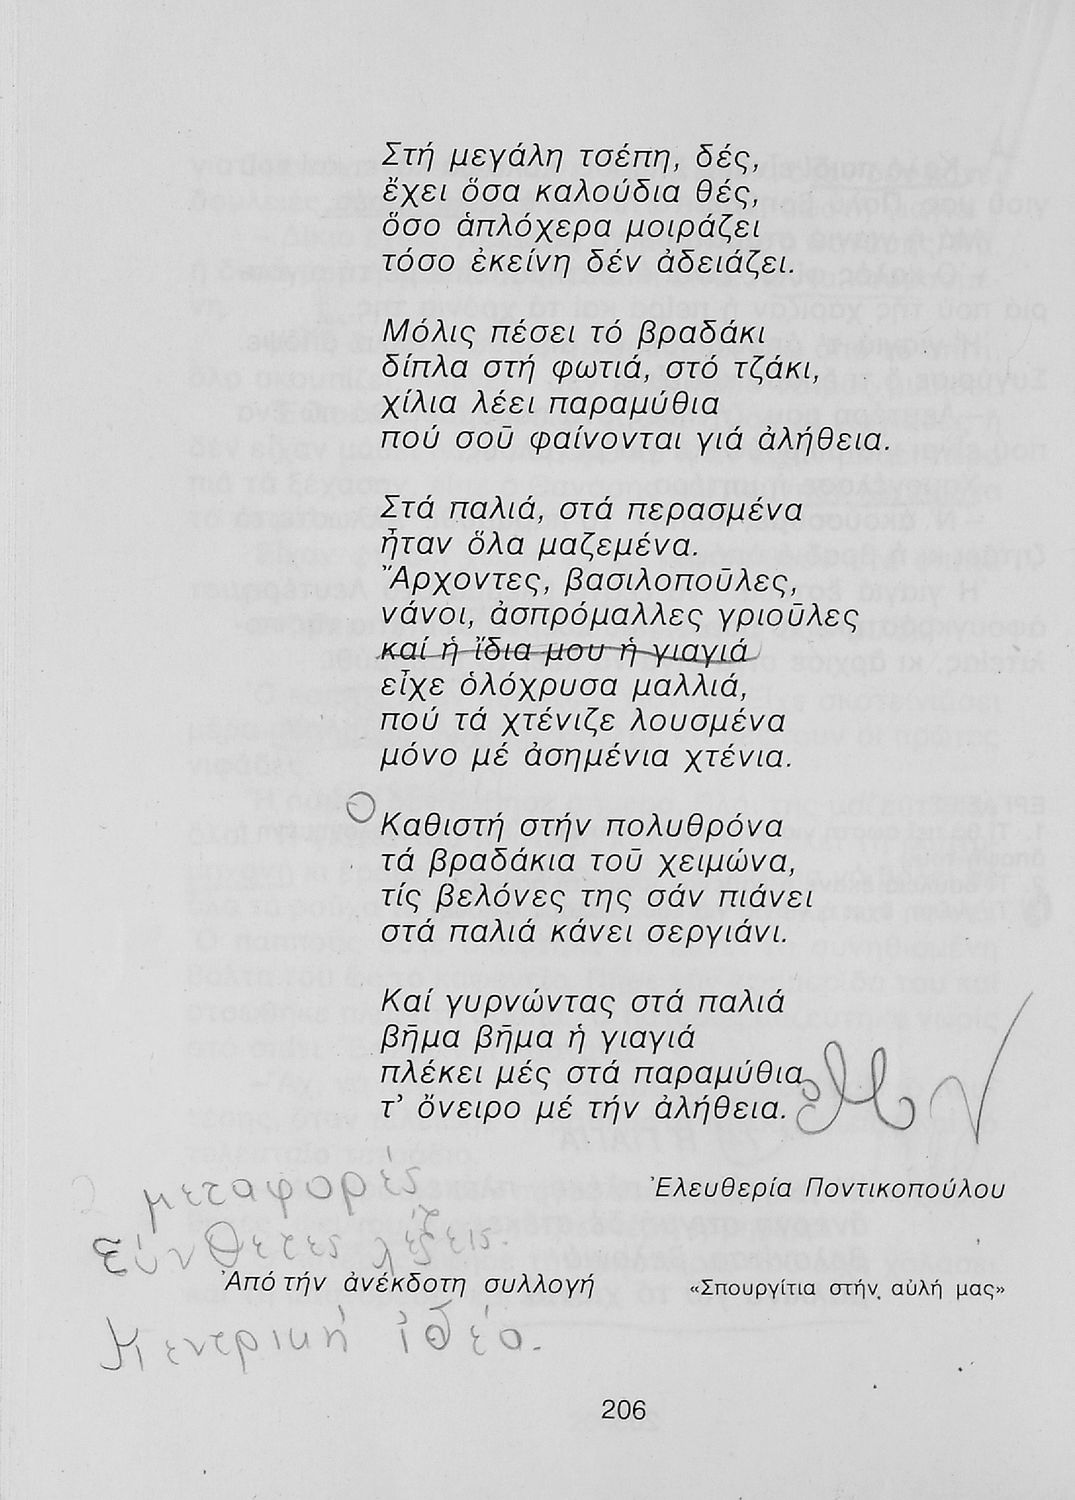 Στή μεγάλη τσέπη, δές,
ἔχει ὅσα καλούδια θές,
ὅσο ἁπλόχερα μοιράζει
τόσο ἐκείνη δέν ἀδειάζει.
Μόλις πέσει τό βραδάκι
δίπλα στή φωτιά, στό τζάκι,
χίλια λέει παραμύθια
πού σοῦ φαίνονται γιά ἀλήθεια.
Στά παλιά, στά περασμένα
ἦταν ὅλα μαζεμένα.
Ἄρχοντες, βασιλοποῦλες,
νάνοι, ἀσπρόμαλλες γριοῦλες
καί ἡ ἴδια μου ἡ γιαγιά
εἶχε ὁλόχρυσα μαλλιά,
πού τά χτένιζε λουσμένα
μόνο μέ ἀσημένια χτένια.
Καθιστή στήν πολυθρόνα
τά βραδάκια τοῦ χειμώνα,
τίς βελόνες της σάν πιάνει
στά παλιά κάνει σεργιάνι.
Καί γυρνώντας στά παλιά
βῆμα βῆμα ἡ γιαγιά
πλέκει μές στά παραμύθια
τ' ὄνειρο μέ τήν ἀλήθεια.
Ἐλευθερία Ποντικοπούλου
μεταφορές
σύνθετες λέξεις.
Ἀπό τήν ἀνέκδοτη συλλογή «Σπουργίτια στήν αὐλή μας»
Κεντρική ἰδέα.
206